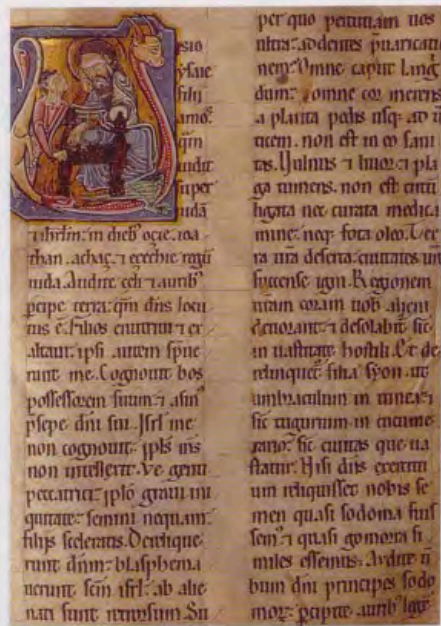 sio
ysaie
filii
amos
qm
uidit
super
iudā
⁊ ihrlm. in dieb' ozie. ioa
than. achaz. ⁊ ezechie regū
iuda. Audite celi ⁊ aurib'
pcipe terra. qm dns locu
tus ē. Filios enutriui ⁊ ex
altaui. ipsi autem spre
runt me. Cognouit bos
possessorem suum. ⁊ asin'
psepe dni sui. Isrl me
non cognouit. ⁊ pls ms
non intellexit. Ve genti
peccatrici. pplo graui ini
quitate. semini nequam.
filiis sceleratis. Dereliquе
runt dnm. blasphema
uerunt scm isrl. ab alie
nati sunt retrorsum. Su
per quo percutiam uos
ultra. addentes puaricati
onem. Omne caput langi
dum. ⁊ omne cor merens
a planta pedis usq. ad u
ticem. non est in eo sani
tas. Uulnus ⁊ liuor ⁊ pla
ga tumens. non est circū
ligata nec curata medica
mine. neq. fota oleo. Ter
ra ura deserta. ciuitates ure
succense igni. Regionem
uram coram uob' alieni
deuorant. ⁊ desolabit sic
in uastitate hostili. Et de
relinquet' filia syon. ut
umbraculum in uinea. ⁊
sic tugurium in cucume
rario. sic ciuitas que ua
statur. Nisi dns exercitu
um reliquisset nobis se
men quasi sodoma fuis
sem'. ⁊ quasi gomorra si
miles essemus. Audite ū
bum dni principes sodo
mor. pcipite aurib' lege